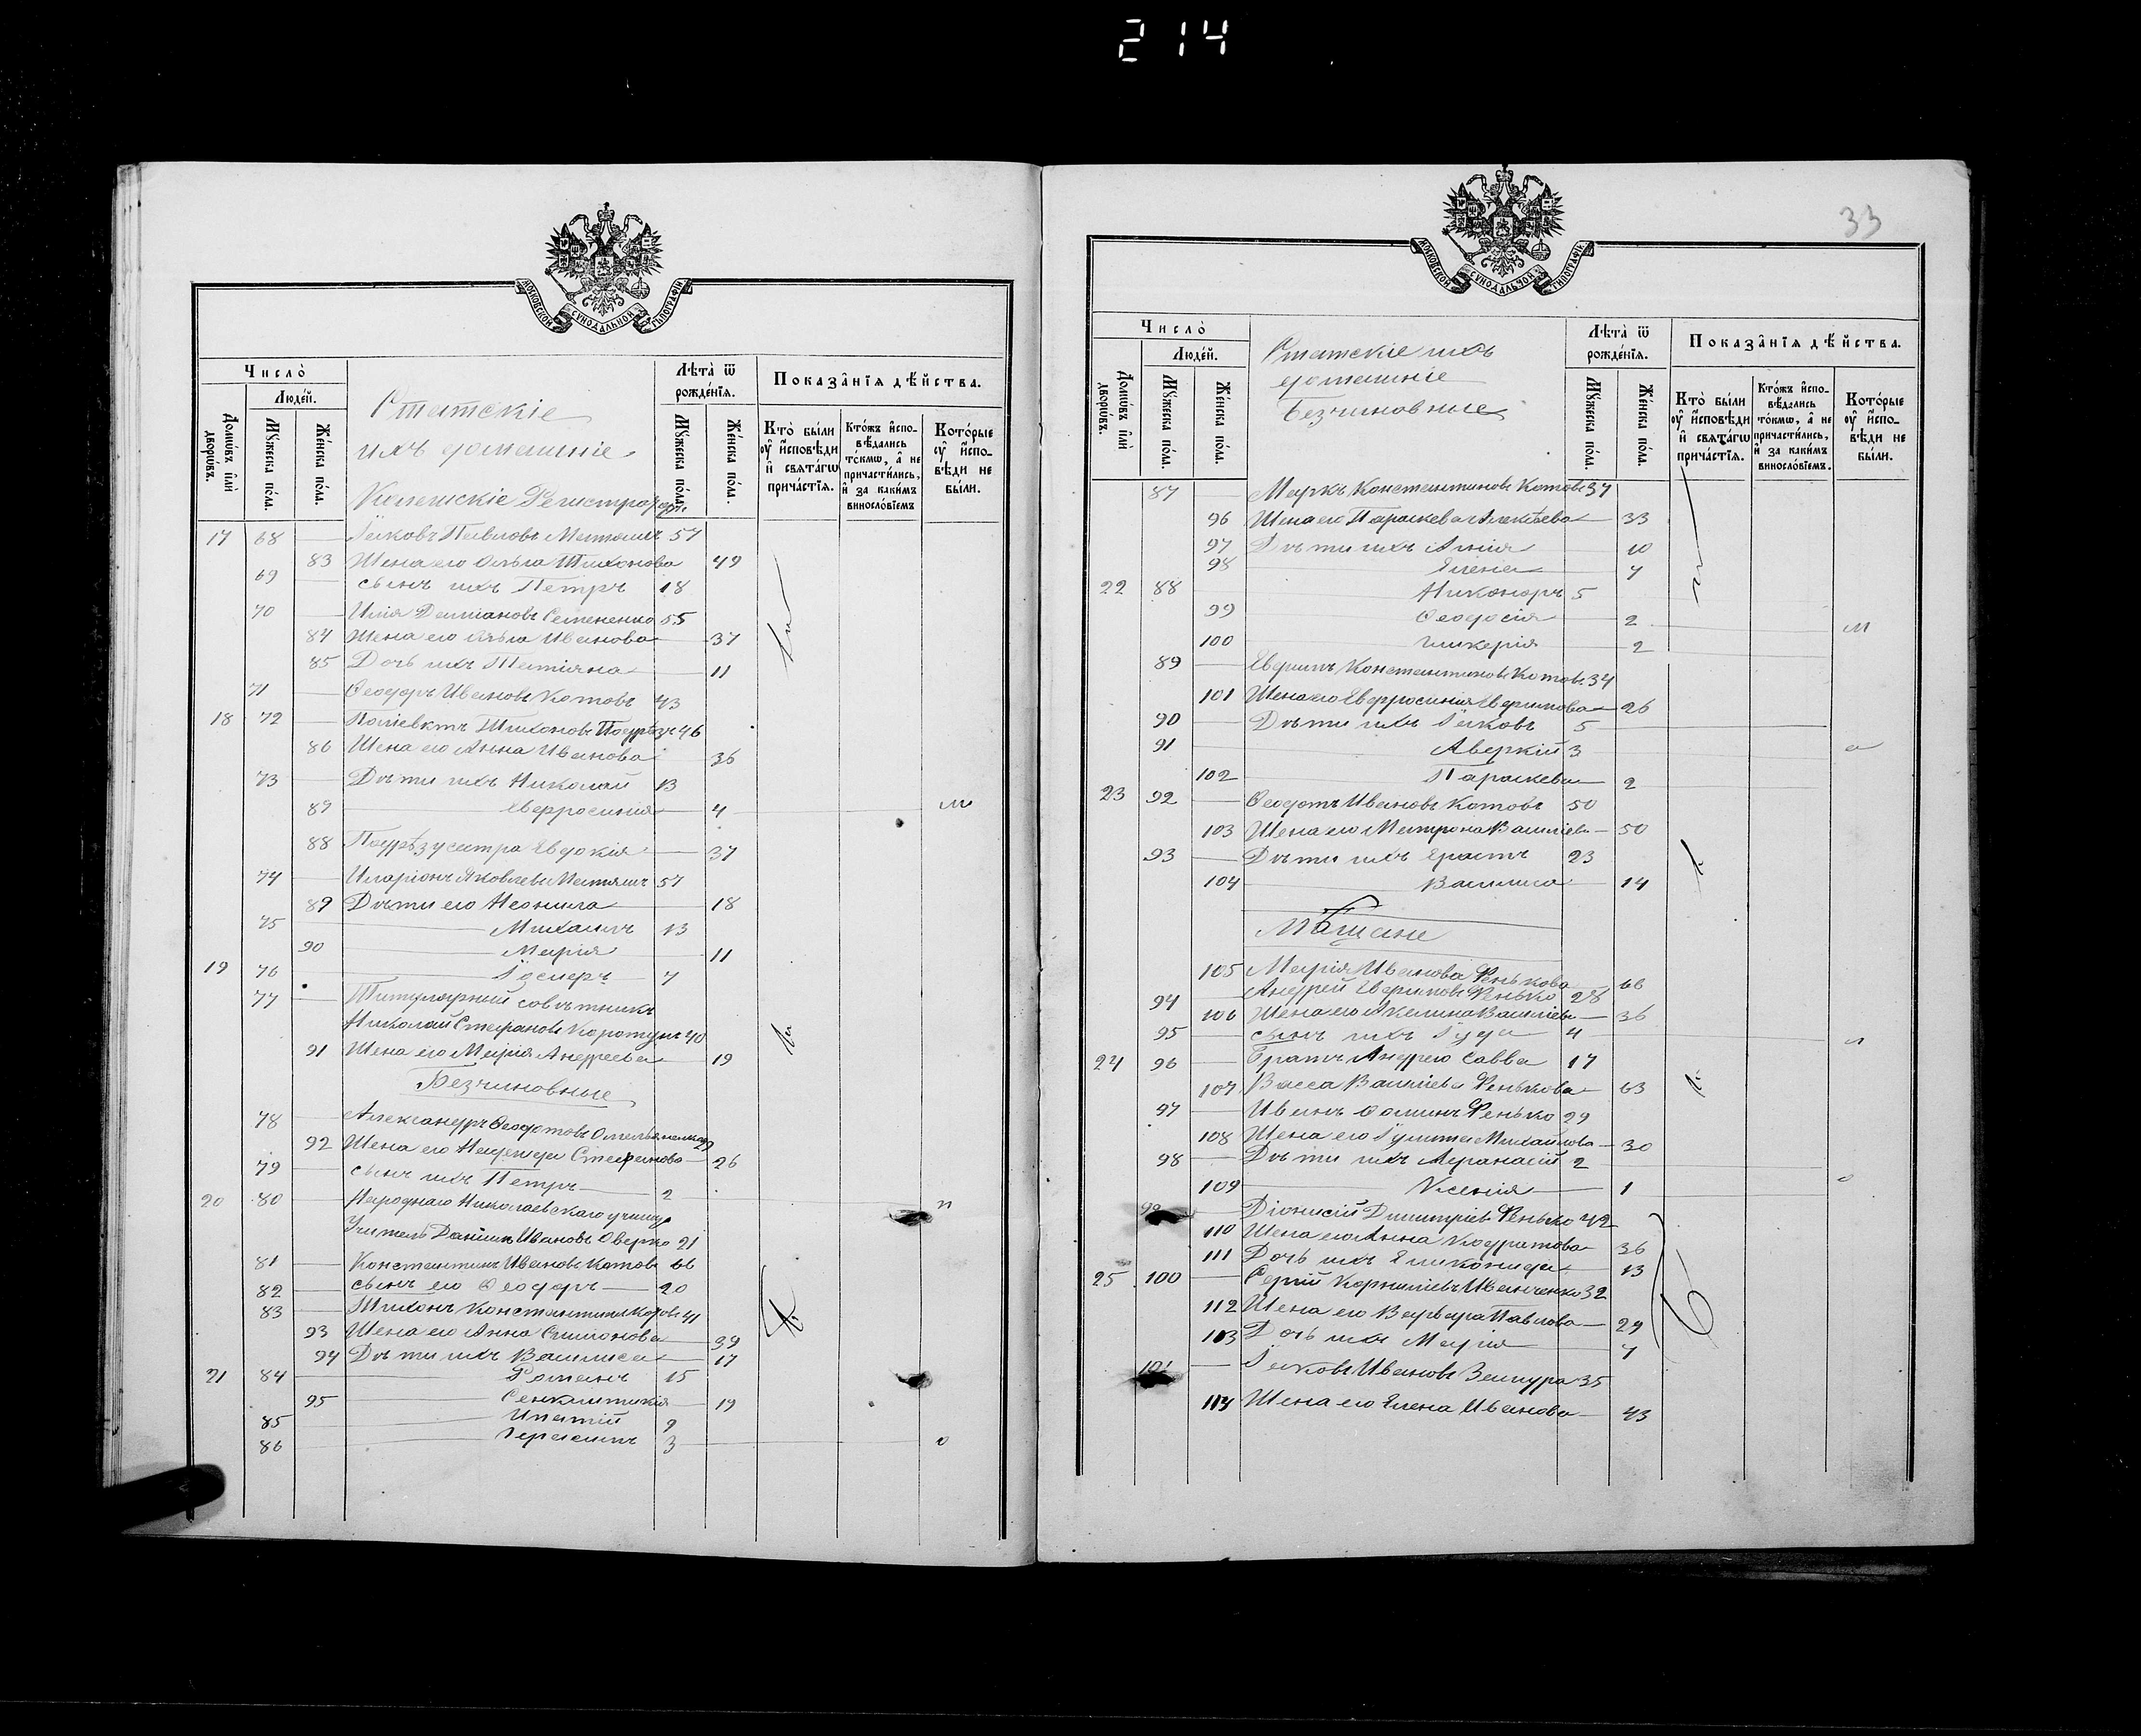 214
МОСКОВСКОЙ СѴНОДАЛЬНОЙ ТИПОГРАФІИ
Число̀
Людей.
Домѡвъ или дворѡвъ.
Мꙋжеска пола.
Женска пола.
Статскіе
ихъ домашніе
Лѣта ѿ рожденія.
Мꙋжеска пола.
Женска пола.
Показанія дѣйства.
Кто были оу исповѣди и святагѡ причастія.
Ктожъ исповѣдались токмѡ, а не причастились, и за какимъ винословіемъ
Которые оу исповѣди не были.
17 68 Іаковъ Павловъ 57
83 Жена его Ольга Тихонова 49
69 сынъ ихъ Петръ 18
70 Илія Даміановъ Семененко 55
84 Жена его Ольга Иванова 37
85 Дочь ихъ Татіяна 11
71 Ѳеодоръ Ивановъ Котовъ 43
18 72 Поліевктъ Тихоновъ 46
86 Жена его Анна Иванова 36
73 Дѣти ихъ Николай 13
87 Евфросинія 4
88 сестра Евдокія 37
74 Иларіонъ Яковлевъ 57
89 Дѣти его Неонила 18
75 Михаилъ 13
90 Марія 11
19 76 7
77 Титулярный совѣтникъ
Николай Стефановъ Коротунъ 40
91 Жена его Марія Андреева 19
Безчиновные
78 Александръ Ѳеодотовъ
92 Жена его Надежда Стефанова 26
79 сынъ ихъ Петръ 2
20 80 Народнаго Николаевскаго училища
Учитель Даніилъ Ивановъ Оверко 21
81 Константинъ Ивановъ Котовъ 66
82 сынъ его Ѳеодоръ 20
83 Тихонъ Константиновъ Котовъ 41
93 Жена его Анна Симонова 39
94 Дѣти ихъ Василиса 17
21 84 Романъ 15
95 19
85 Ипатій 9
86 Герасимъ 3
33
МОСКОВСКОЙ СѴНОДАЛЬНОЙ ТИПОГРАФІИ
Число̀
Людей.
Домѡвъ или дворѡвъ.
Мꙋжеска пола.
Женска пола.
Статскіе ихъ
домашніе
Безчиновные
Лѣта ѿ рожденія.
Мꙋжеска пола.
Женска пола.
Показанія дѣйства.
Кто были оу исповѣди и святагѡ причастія.
Ктожъ исповѣдались токмѡ, а не причастились, и за какимъ винословіемъ.
Которые оу исповѣди не были.
87 Маркъ Константиновъ Котовъ 37
96 Жена его Параскева Алексѣева 33
97 Дѣти ихъ Анна 10
98 Елена 7
22 88 Никаноръ 5
99 Ѳеодосія 2
100 Гликерія 2
89 Константиновъ Котовъ 34
101 Жена его Евфросинія 26
90 Дѣти ихъ Іаковъ 5
91 Аверкій 3
102 Параскева 2
23 92 Ѳеодотъ Ивановъ Котовъ 50
103 Жена его Матрона Василіева 50
93 Дѣти ихъ Ерастъ 23
104 Василиса 14
Мѣщане
105 Марія Иванова Фенькова 66
94 Андрей Фенько 28
106 Жена его Акилина Василіева 36
95 сынъ ихъ Іуда 4
24 96 Братъ Андрею Савва 17
107 Васса Василіева Фенькова 63
97 Иванъ Ѳоминъ Фенько 29
108 Жена его Іулитта Михайлова 30
98 Дѣти ихъ Аѳанасій 2
109 Ксенія 1
99 Діонисій Димитріевъ Фенько 42
110 Жена его Анна Кодратова 36
111 Дочь ихъ 13
25 100 Сергій Корниліевъ Иванченко 32
112 Жена его Варвара Павлова 29
113 Дочь ихъ Марія 7
101 Іаковъ Ивановъ 35
114 Жена его Елена Иванова 43